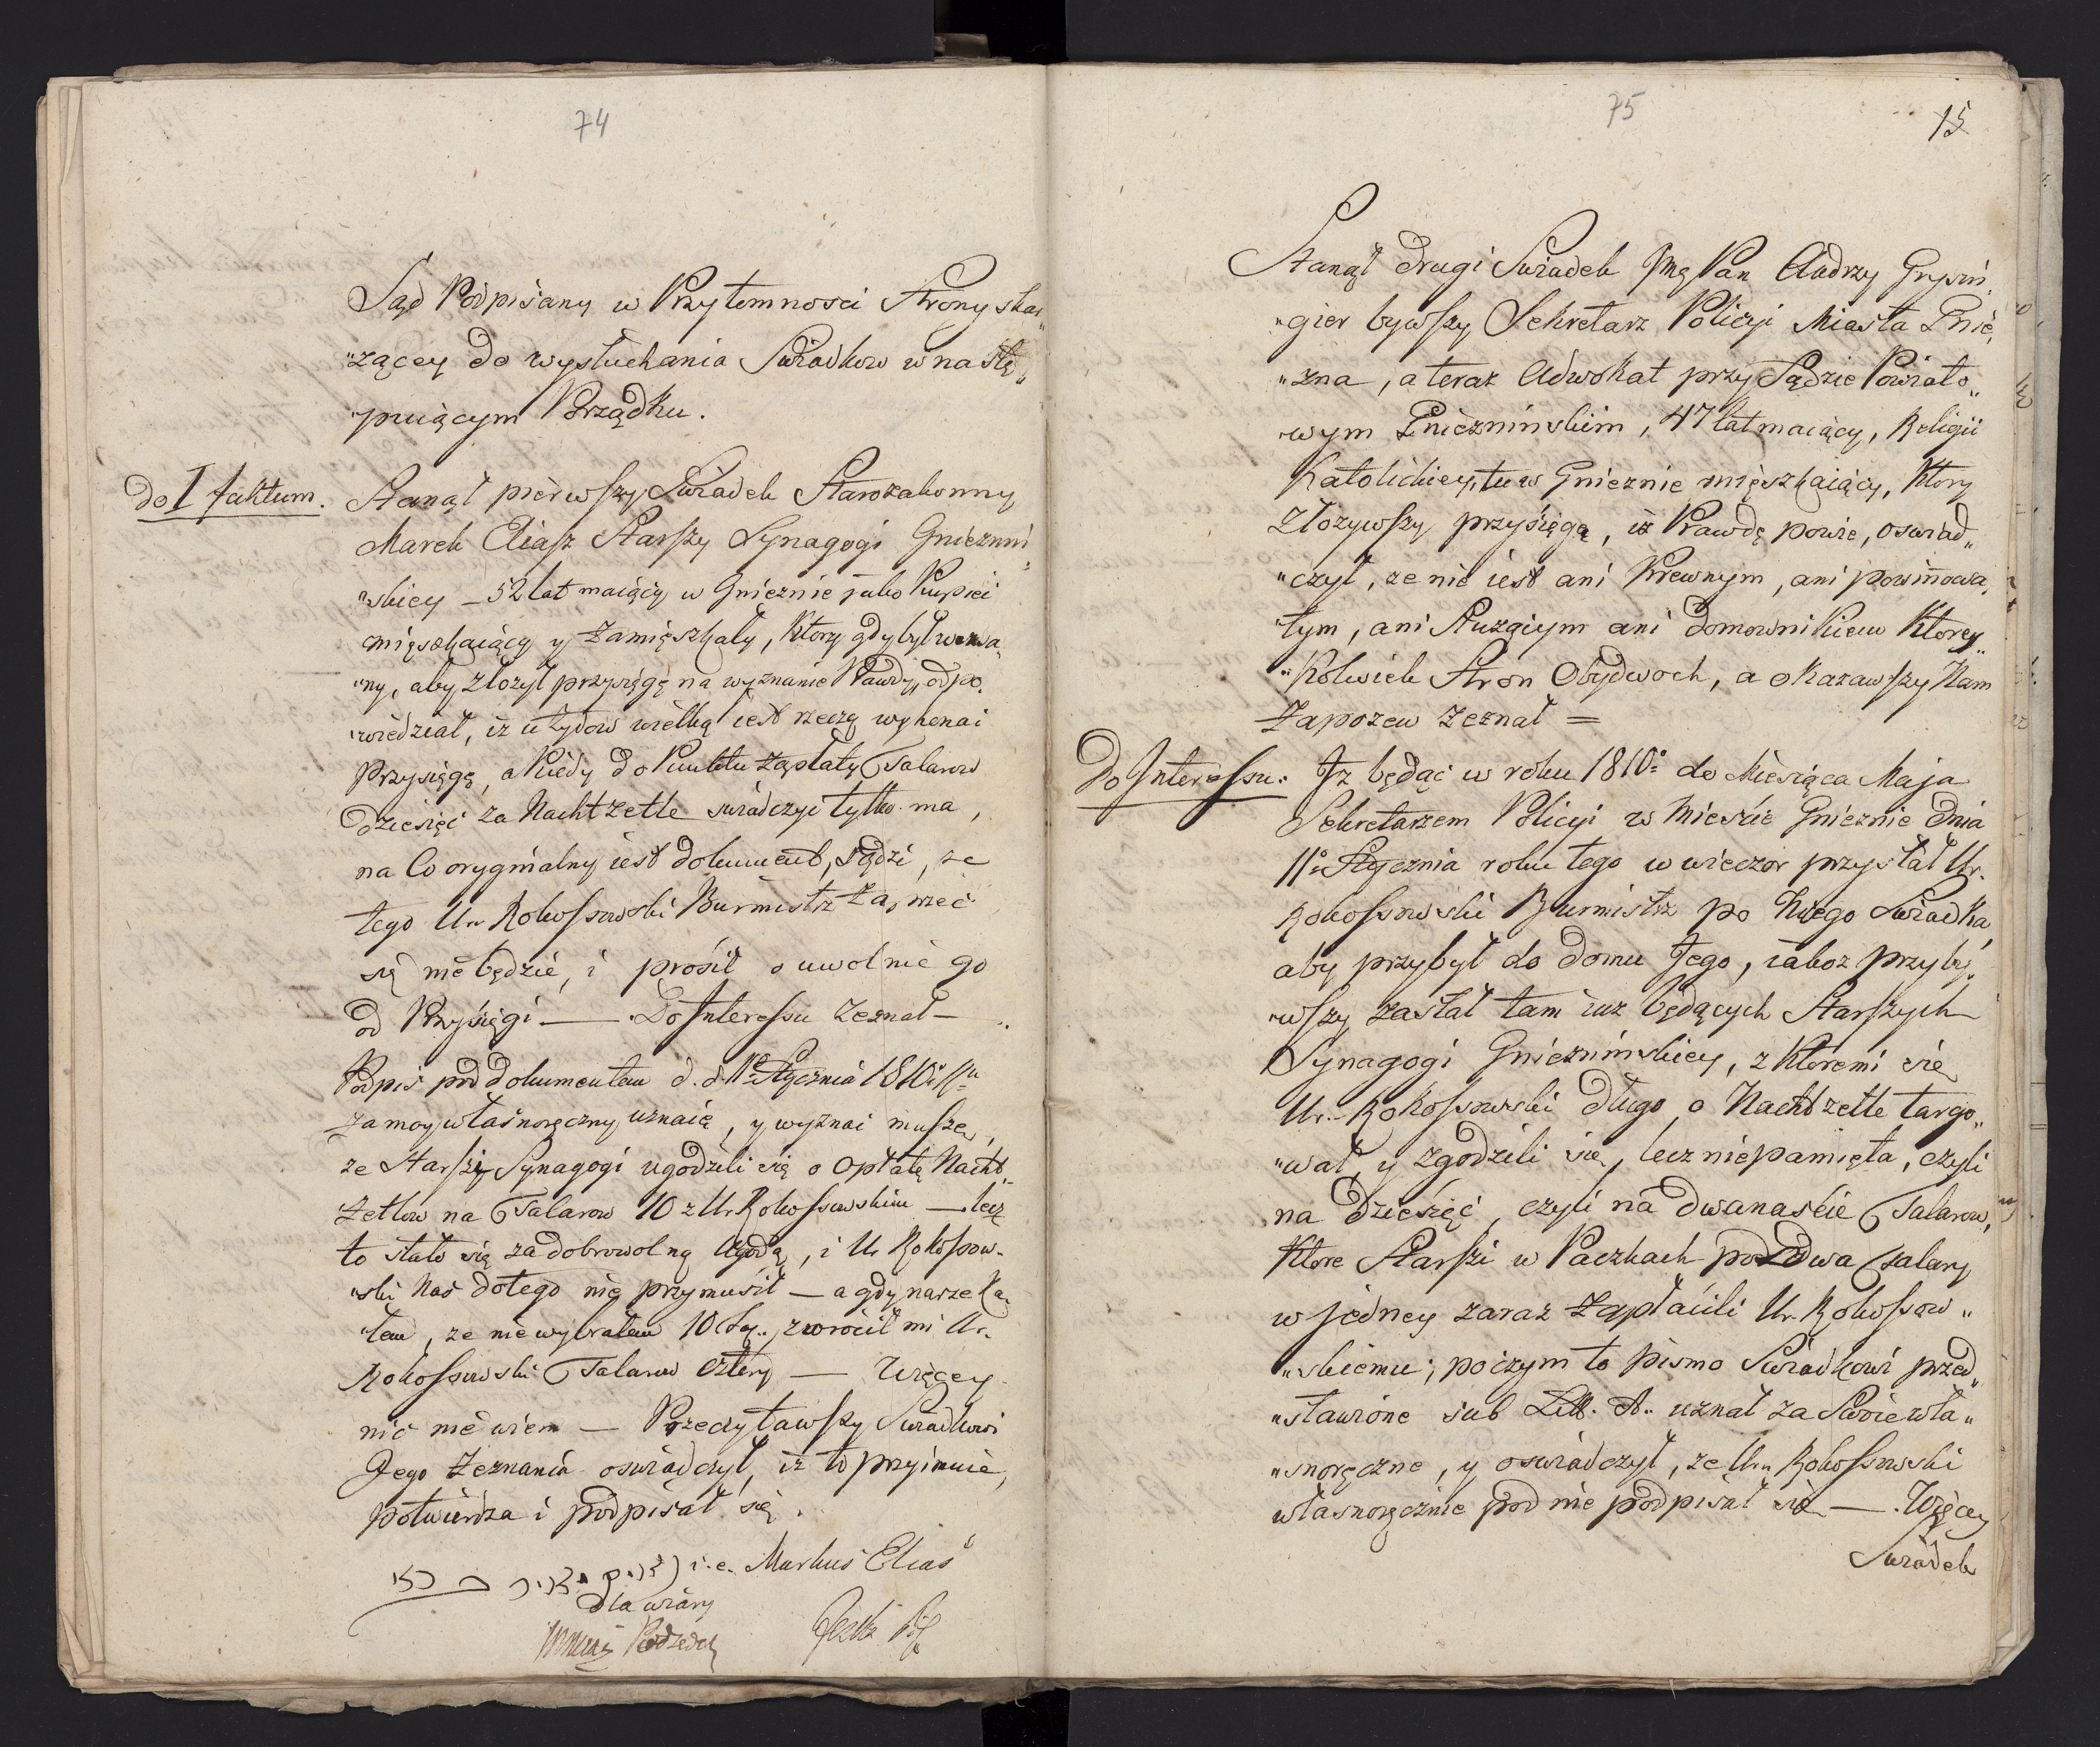 74
Sąd Podpisany w Przytomnosci Strony skar„
„zącey do wysłuchania Swiadkow w nastę„
„puiącym Porządku.
do I faktum. Stanął pierwszy Swiadek Starozakonny
Marek Eliasz Starszy Synagogi Gniezniń„
„skiey – 52 lat maiący w Gnieznie jako Kupiec
mięszkaiący y zamięszkały, Ktory gdy był wezwa„
„ny, aby złozył przysięgę na wyznanie Prawdy, odpo„
„wiedział, iz u Zydow wielką iest rzeczą wykonac
Przysięgę, a Kiedy do Punktu Zapłaty Talarow
dziesięc za Nachtzetle swiadczyc tylko ma,
na Co oryginalny iest dokument, sądzi, ze
tego Ur. Rokossowski Burmistrz Zaprzec
się nie będzie, i prosił o uwolnie go
od Przysięgi — Do Interessu zeznał —
Podpis pod dokumentem d. d. 11º Stycznia 1810º
za moy własnoręczny uznaię, y wyznac muszę,
ze Starsi Synagogi ugodzili się o Opłatę Nacht„
Zetlow na Talarow 10 z Ur. Rokossowskim — lecz
to stało się za dobrowolną Ugodą, i Ur Rokossow„
„ski Nas do tego nie przymusił — a gdy narzeka„
„łem, ze nie wybrałem 10 , zwrócił mi Ur.
Rokossowski Talarow cztery — Więcey
nic nie wiem — Przeczytawszy Swiadkowi
Jego Zeznania oswiadczył, iz to przyimuie,
potwierdza i podpisał się.
i. e. Markus Elias
dla wiary
75
15
Stanął drugi Swiadek Pan Andrzy Grysin„
„gier bywszy Sekretarz Policyi Miasta Gnie„
„zna, a teraz Adwokat przy Sądzie Powiato„
„wym Gniezninskim, 47 lat maiący, Religii
Katolickiey, tu w Gnieznie mięszkaiący, Ktory
złozywszy przysięgę, iz Prawdę powie, oswiad„
„czył, ze nie iest ani Krewnym, ani powinowa„
„tym, ani Sługiym ani domownikiem Ktorey„
„Kolwiek Stron Obydwoch, a okazawszy Nam
Zapozew zeznał =
Do Interessu. Iz będąc w roku 1810º do Miesiąca Maja
Sekretarzem Policyi w Miescie Gnieznie dnia
11º Stycznia roku tego w wieczor przysłał Ur.
Rokossowski Burmistrz po Niego Swiadka
aby przybył do domu Jego, iakoz przyby„
„wszy zastał tam iuz będących Starszych
Synagogi Gnieznińskiey, z Ktoremi się
Ur. Rokossowski długo o Nachtzetle targo„
„wał, y zgodzili się, lecz niepamięta, czyli
na dziesięć, czyli na dwanaście Talarow,
Ktore Starsi w Paczkach po dwa talary
w jedney zaraz Zapłacili Ur. Rokossow„
„skiemu, poczym to pismo Swiadkowi przed„
„stawione sub Litt. A. uznał za Swoie wła„
„snoręczne, y oswiadczył, ze Ur. Rokossowski
własnoręcznie pod nie podpisał się — Więcey
Swiadek